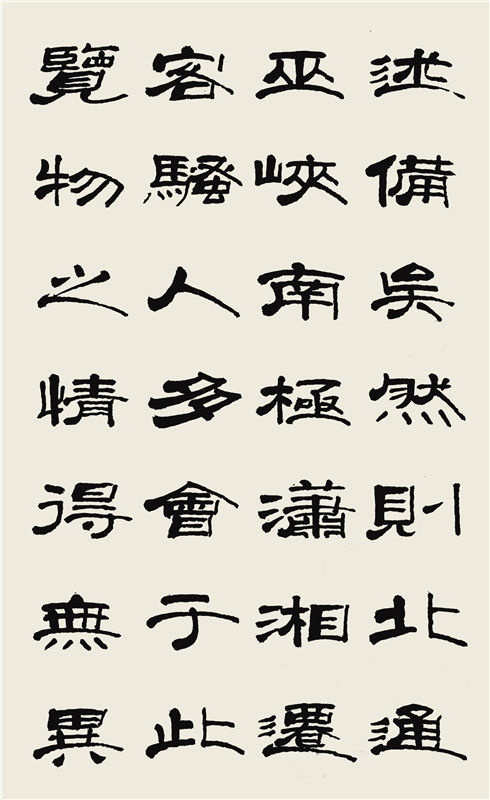 述備矣然則北通
巫峽南極瀟湘遷
客騷人多會于此
覽物之情得無異